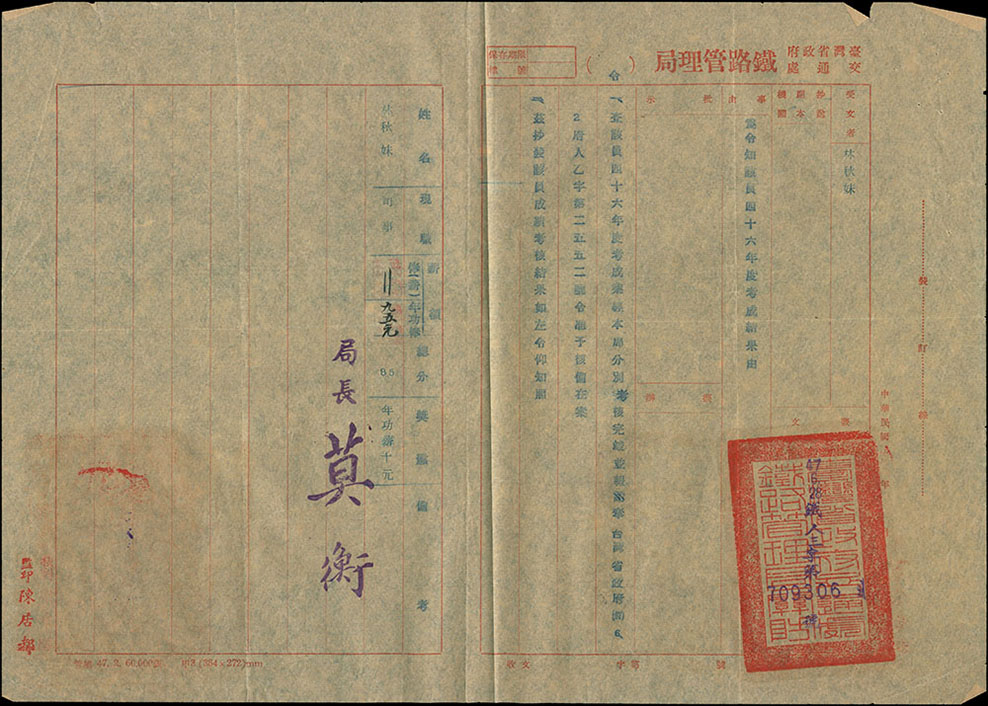 臺灣省政府
交通處
鐵路管理局
(　　)
令
保存期限
檔號
受文者
林秋妹
事由
為令知該員四十六年度考成結果由
批示
擬辦
中華民國 年
裝訂線
47 6. 28 鐵人三字第
709306 號
一、查該員四十六年度考成業經本局分別考核完竣並報奉台灣省政府(47)6.
2府人乙字第二五五二號令准予核備在案
二、茲抄發該員成績考核結果如左令仰知照
姓名
現職
薪額
總分
獎懲
備考
林秋妹
司事
九五元
85
年功薪十元
局長 莫衡
監印 陳居鄰
收文 字第 號
47. 2. 60,000 (384×272)mm